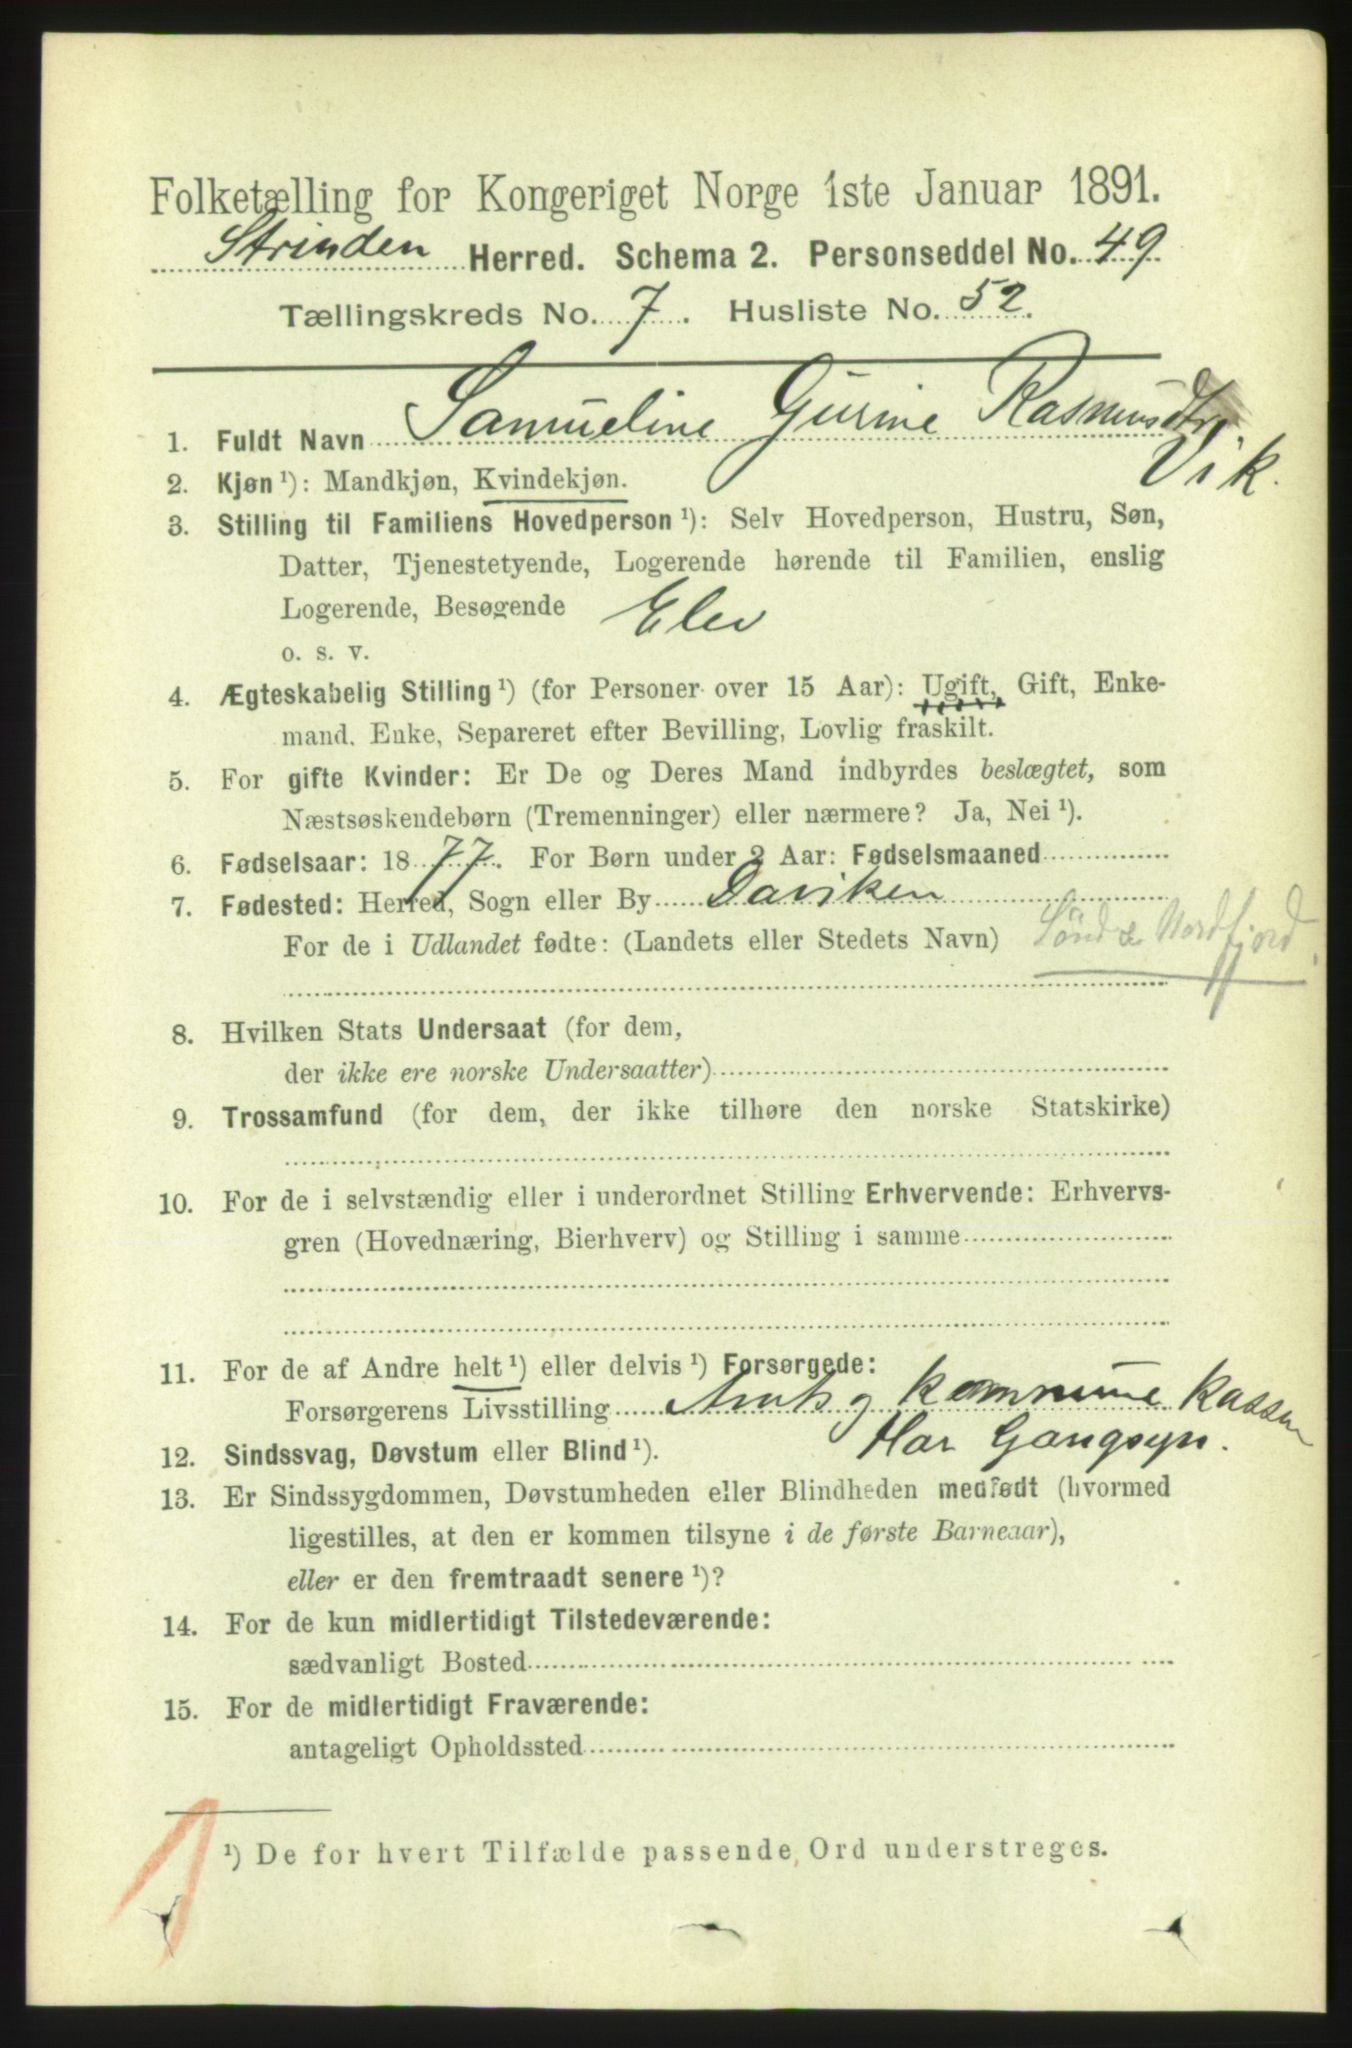 Folketælling for Kongeriget Norge 1ste Januar 1891.
Strinden Herred. Schema 2. Personseddel No. 49
Tællingskreds No. 7. Husliste No. 52.
1. Fuldt Navn Samueline Gurine Rasmusdtr
Vik.
2. Kjøn ¹): Mandkjøn, Kvindekjøn.
3. Stilling til Familiens Hovedperson ¹): Selv Hovedperson, Hustru, Søn,
Datter, Tjenestetyende, Logerende hørende til Familien, enslig
Logerende, Besøgende Elev
o. s. v.
4. Ægteskabelig Stilling ¹) (for Personer over 15 Aar): Ugift, Gift, Enke-
mand. Enke, Separeret efter Bevilling, Lovlig fraskilt.
5. For gifte Kvinder: Er De og Deres Mand indbyrdes beslægtet, som
Næstsøskendebørn (Tremenninger) eller nærmere? Ja, Nei ¹).
6. Fødselsaar: 1877. For Børn under 2 Aar: Fødselsmaaned
7. Fødested: Herred, Sogn eller By Daviken
For de i Udlandet fødte: (Landets eller Stedets Navn) Sønd & Nordfjord.
8. Hvilken Stats Undersaat (for dem,
der ikke ere norske Undersaatter)
9. Trossamfund (for dem, der ikke tilhøre den norske Statskirke)
10. For de i selvstændig eller i underordnet Stilling Erhvervende: Erhvervs-
gren (Hovednæring, Bierhverv) og Stilling i samme
11. For de af Andre helt ¹) eller delvis ¹) Forsørgede:
Forsørgerens Livsstilling Amts og kommune kassen
12. Sindssvag, Døvstum eller Blind ¹). Har Gangsyn.
13. Er Sindssygdommen, Døvstumheden eller Blindheden medfødt (hvormed
ligestilles, at den er kommen tilsyne i de første Barneaar),
eller er den fremtraadt senere ¹)?
14. For de kun midlertidigt Tilstedeværende:
sædvanligt Bosted
15. For de midlertidigt Fraværende:
antageligt Opholdssted
1
¹) De for hvert Tilfælde passende Ord understreges.